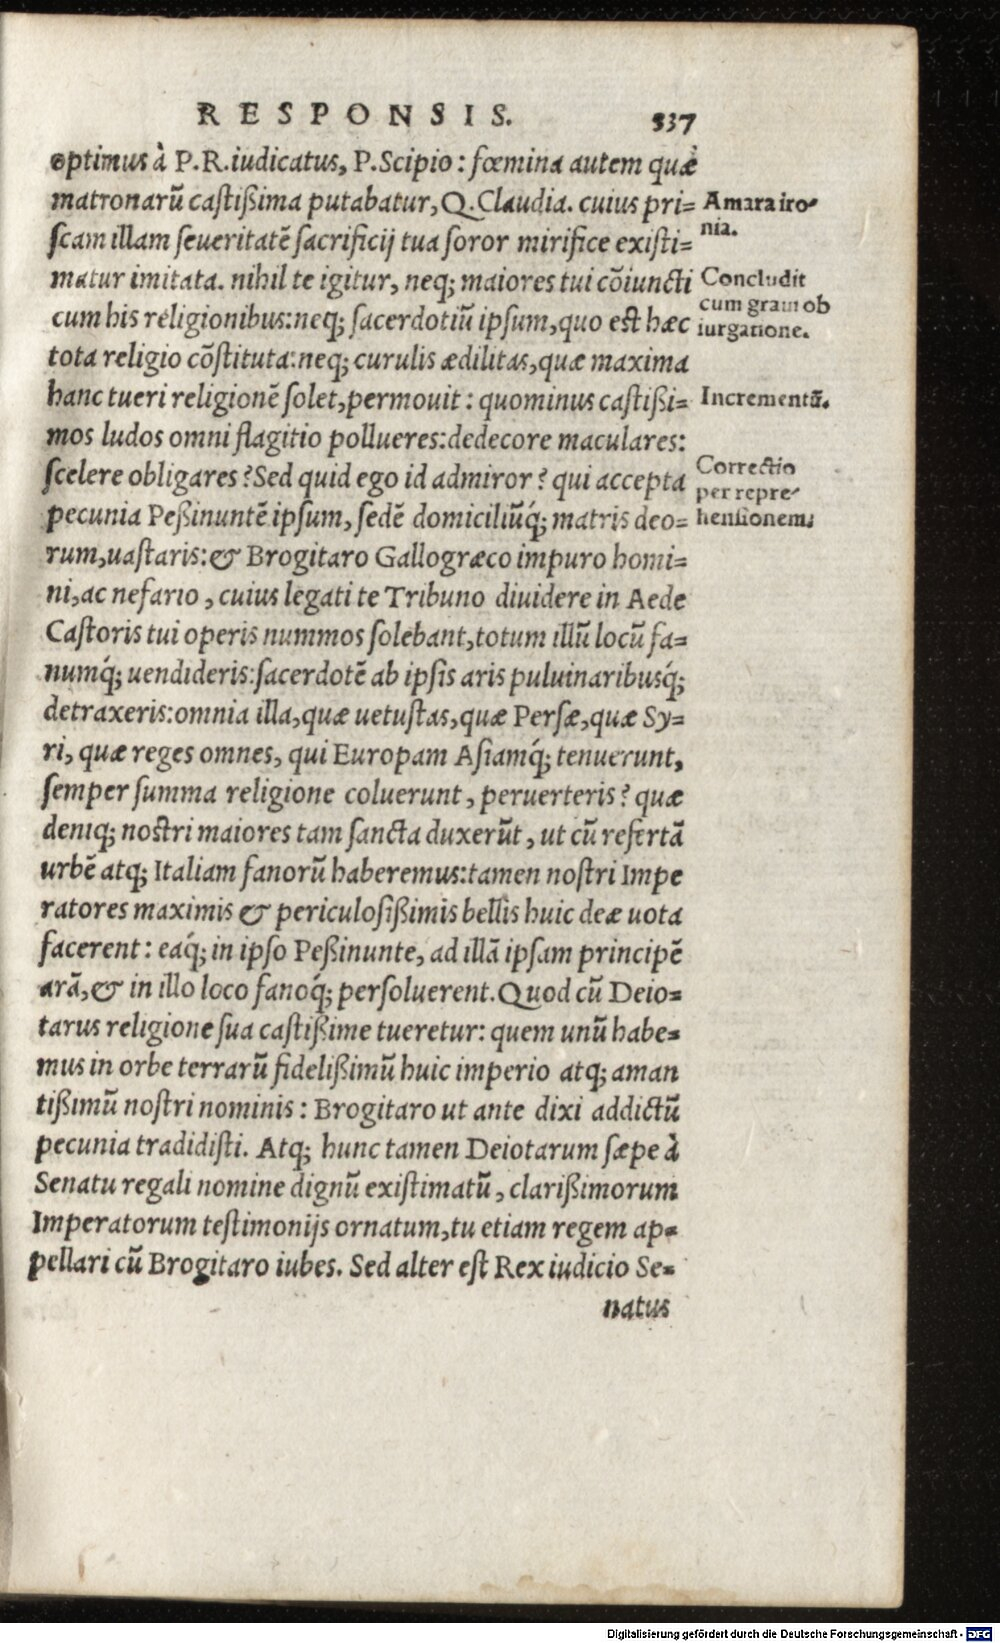 RESPONSIS. 537
optimus à P.R.iudicatus, P.Scipio: fœmina autem quæ
matronarū castißima putabatur, Q.Claudia. cuius pri=
scam illam seueritatē sacrificij tua soror mirifice existi=
matur imitata. nihil te igitur, neq; maiores tui cōiuncti
cum his religionibus:neq; sacerdotiū ipsum,quo est hæc
tota religio cōstituta:neq; curulis ædilitas,quæ maxima
hanc tueri religionē solet,permouit: quominus castißi=
mos ludos omni flagitio pollueres:dedecore maculares:
scelere obligares? Sed quid ego id admiror? qui accepta
pecunia Peßinuntē ipsum, sedē domiciliūq́; matris deo=
rum,uastaris:& Brogitaro Gallogræco impuro homi=
ni,ac nefario, cuius legati te Tribuno diuidere in Aede
Castoris tui operis nummos solebant,totum illū locū fa=
numq́; uendideris:sacerdotē ab ipsis aris puluinaribusq́;
detraxeris:omnia illa,quæ uetustas,quæ Persæ,quæ Sy=
ri, quæ reges omnes, qui Europam Asiamq́; tenuerunt,
semper summa religione coluerunt, peruerteris? quæ
deniq; nostri maiores tam sancta duxerūt, ut cū refertā
urbē atq; Italiam fanorū haberemus:tamen nostri Impe
ratores maximis & periculosißimis bellis huic deæ uota
facerent: eaq́; in ipso Peßinunte, ad illā ipsam principē
arā,& in illo loco fanoq́; persoluerent. Quod cū Deio=
tarus religione sua castißime tueretur: quem unū habe=
mus in orbe terrarū fidelißimū huic imperio atq; aman
tißimū nostri nominis: Brogitaro ut ante dixi addictū
pecunia tradidisti. Atq; hunc tamen Deiotarum sæpe à
Senatu regali nomine dignū existimatū, clarißimorum
Imperatorum testimonijs ornatum,tu etiam regem ap=
pellari cū Brogitaro iubes. Sed alter est Rex iudicio Se=
natus
Amara iro-
nia.
Concludit
cum graui ob
iurgatione.
Incrementū.
Correctio
per repre-
hensionem.
Digitalisierung gefördert durch die Deutsche Forschungsgemeinschaft - DFG